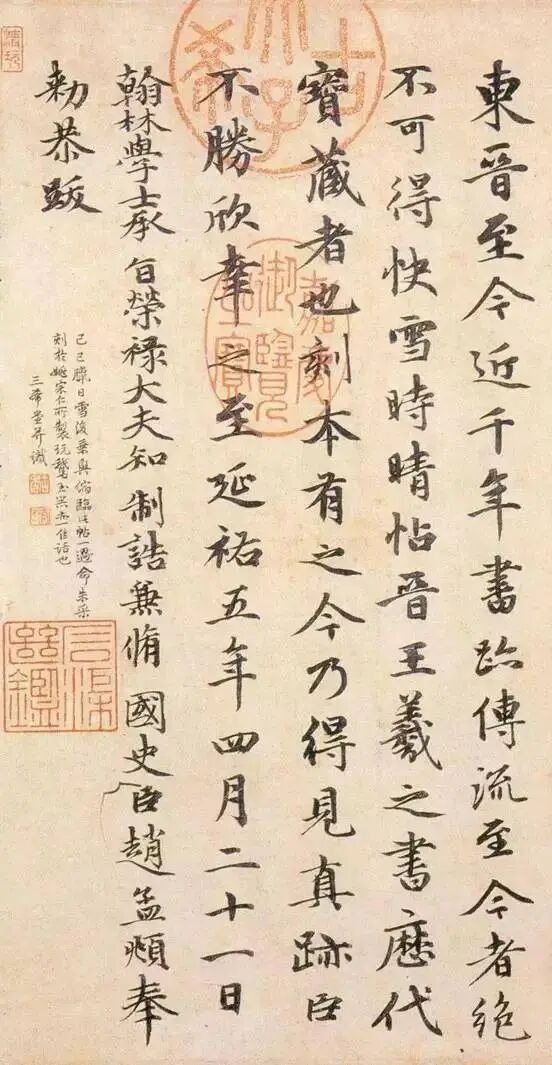 古稀天子
東晉至今近千年書跡傳流至今者絕
不可得快雪時晴帖晉王羲之書歷代
寶藏者也刻本有之今乃得見真跡臣
不勝欣幸之至延祐五年四月二十一日
翰林學士承旨榮祿大夫知制誥兼脩國史臣趙孟頫奉
勅恭跋
嘉慶御覽之寶
己巳臘日雪後乘興偶臨此帖一過命朱采
刻於姚宗仁所製玩鵞玉器亦佳話也
三希堂并識
石渠繼鑑